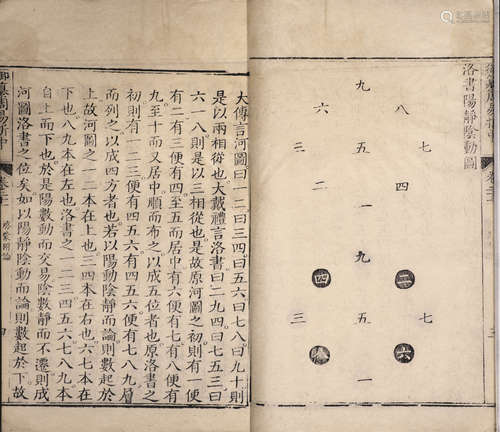 御纂周易折中
洛書陽靜陰動圖
九
八 六
七 三
四 二
五
一
九
二 四
七 五 三
六 八
一
大傳言河圖曰一二曰三四曰五六曰七八曰九十則
是以兩相從也大戴禮言洛書曰二九四曰七五三曰
六一八則是以三相從也是故原河圖之初則有一便
有二有三便有四至五而居中有六便有七有八便有
九至十而又居中順而布之以成五位者也原洛書之
初則有一二三便有四五六有四五六便有七八九層
而列之以成四方者也若以陽動陰靜而論則數起於
上故河圖之一二本在上也三四本在右也六七本在
下也八九本在左也洛書之一二三四五六七八九本
自上而下也於是陽數動而交易陰數靜而不遷則成
河圖洛書之位矣如以陽靜陰動而論則數起於下故
御纂周易折中
啟蒙附論